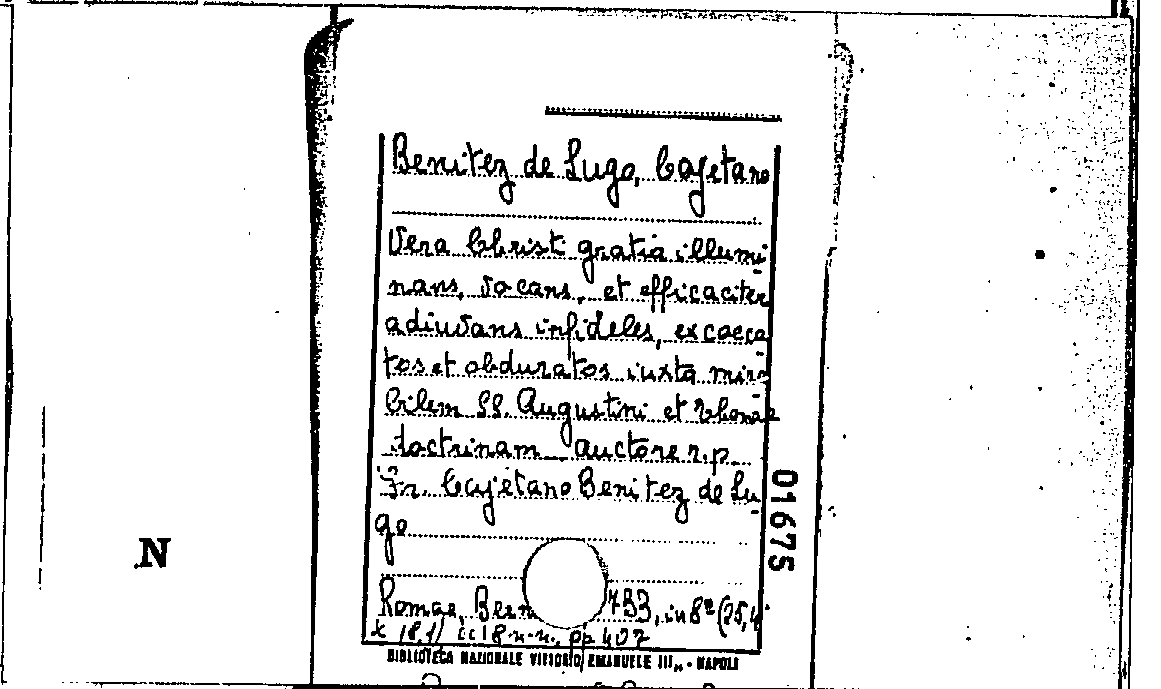 Benitez de Lugo, Cajetano
Vera Christi gratia illumi-
nans, vocans, et efficaciter
adiuvans infideles, excaeca-
tos et obduratos iuxta mira-
bilem SS. Augustini et Thomae
doctrinam auctore r.p.
Fr. Cajetano Benitez de Lu-
go
Romae, Bern 733, in 8° (25,4
x 18,1) cc 18 n.n., pp 407
BIBLIOTECA NAZIONALE VITTORIO EMANUELE III,, - NAPOLI
01675
N